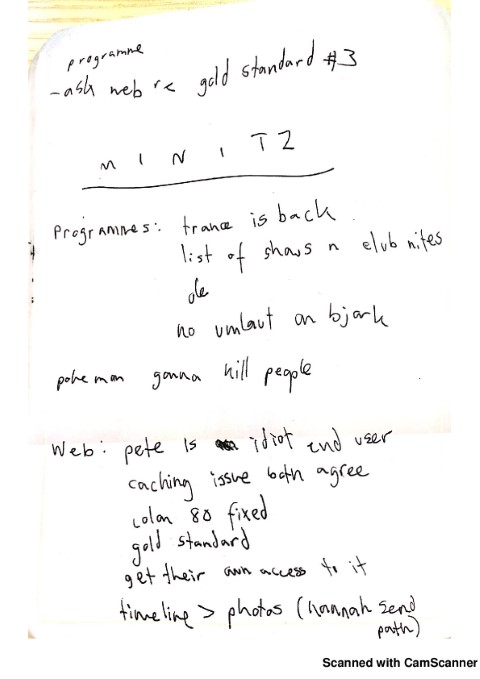 programme
- ask web re gold standard #3
M I N I T Z
Programmes: trance is back
list of shows n club nites
no umlaut on bjork
pokemon gonna kill people
Web: pete is idiot end user
caching issue both agree
colon 80 fixed
gold standard
get their own access to it
timeline > photos (hannah send
path)
Scanned with CamScanner